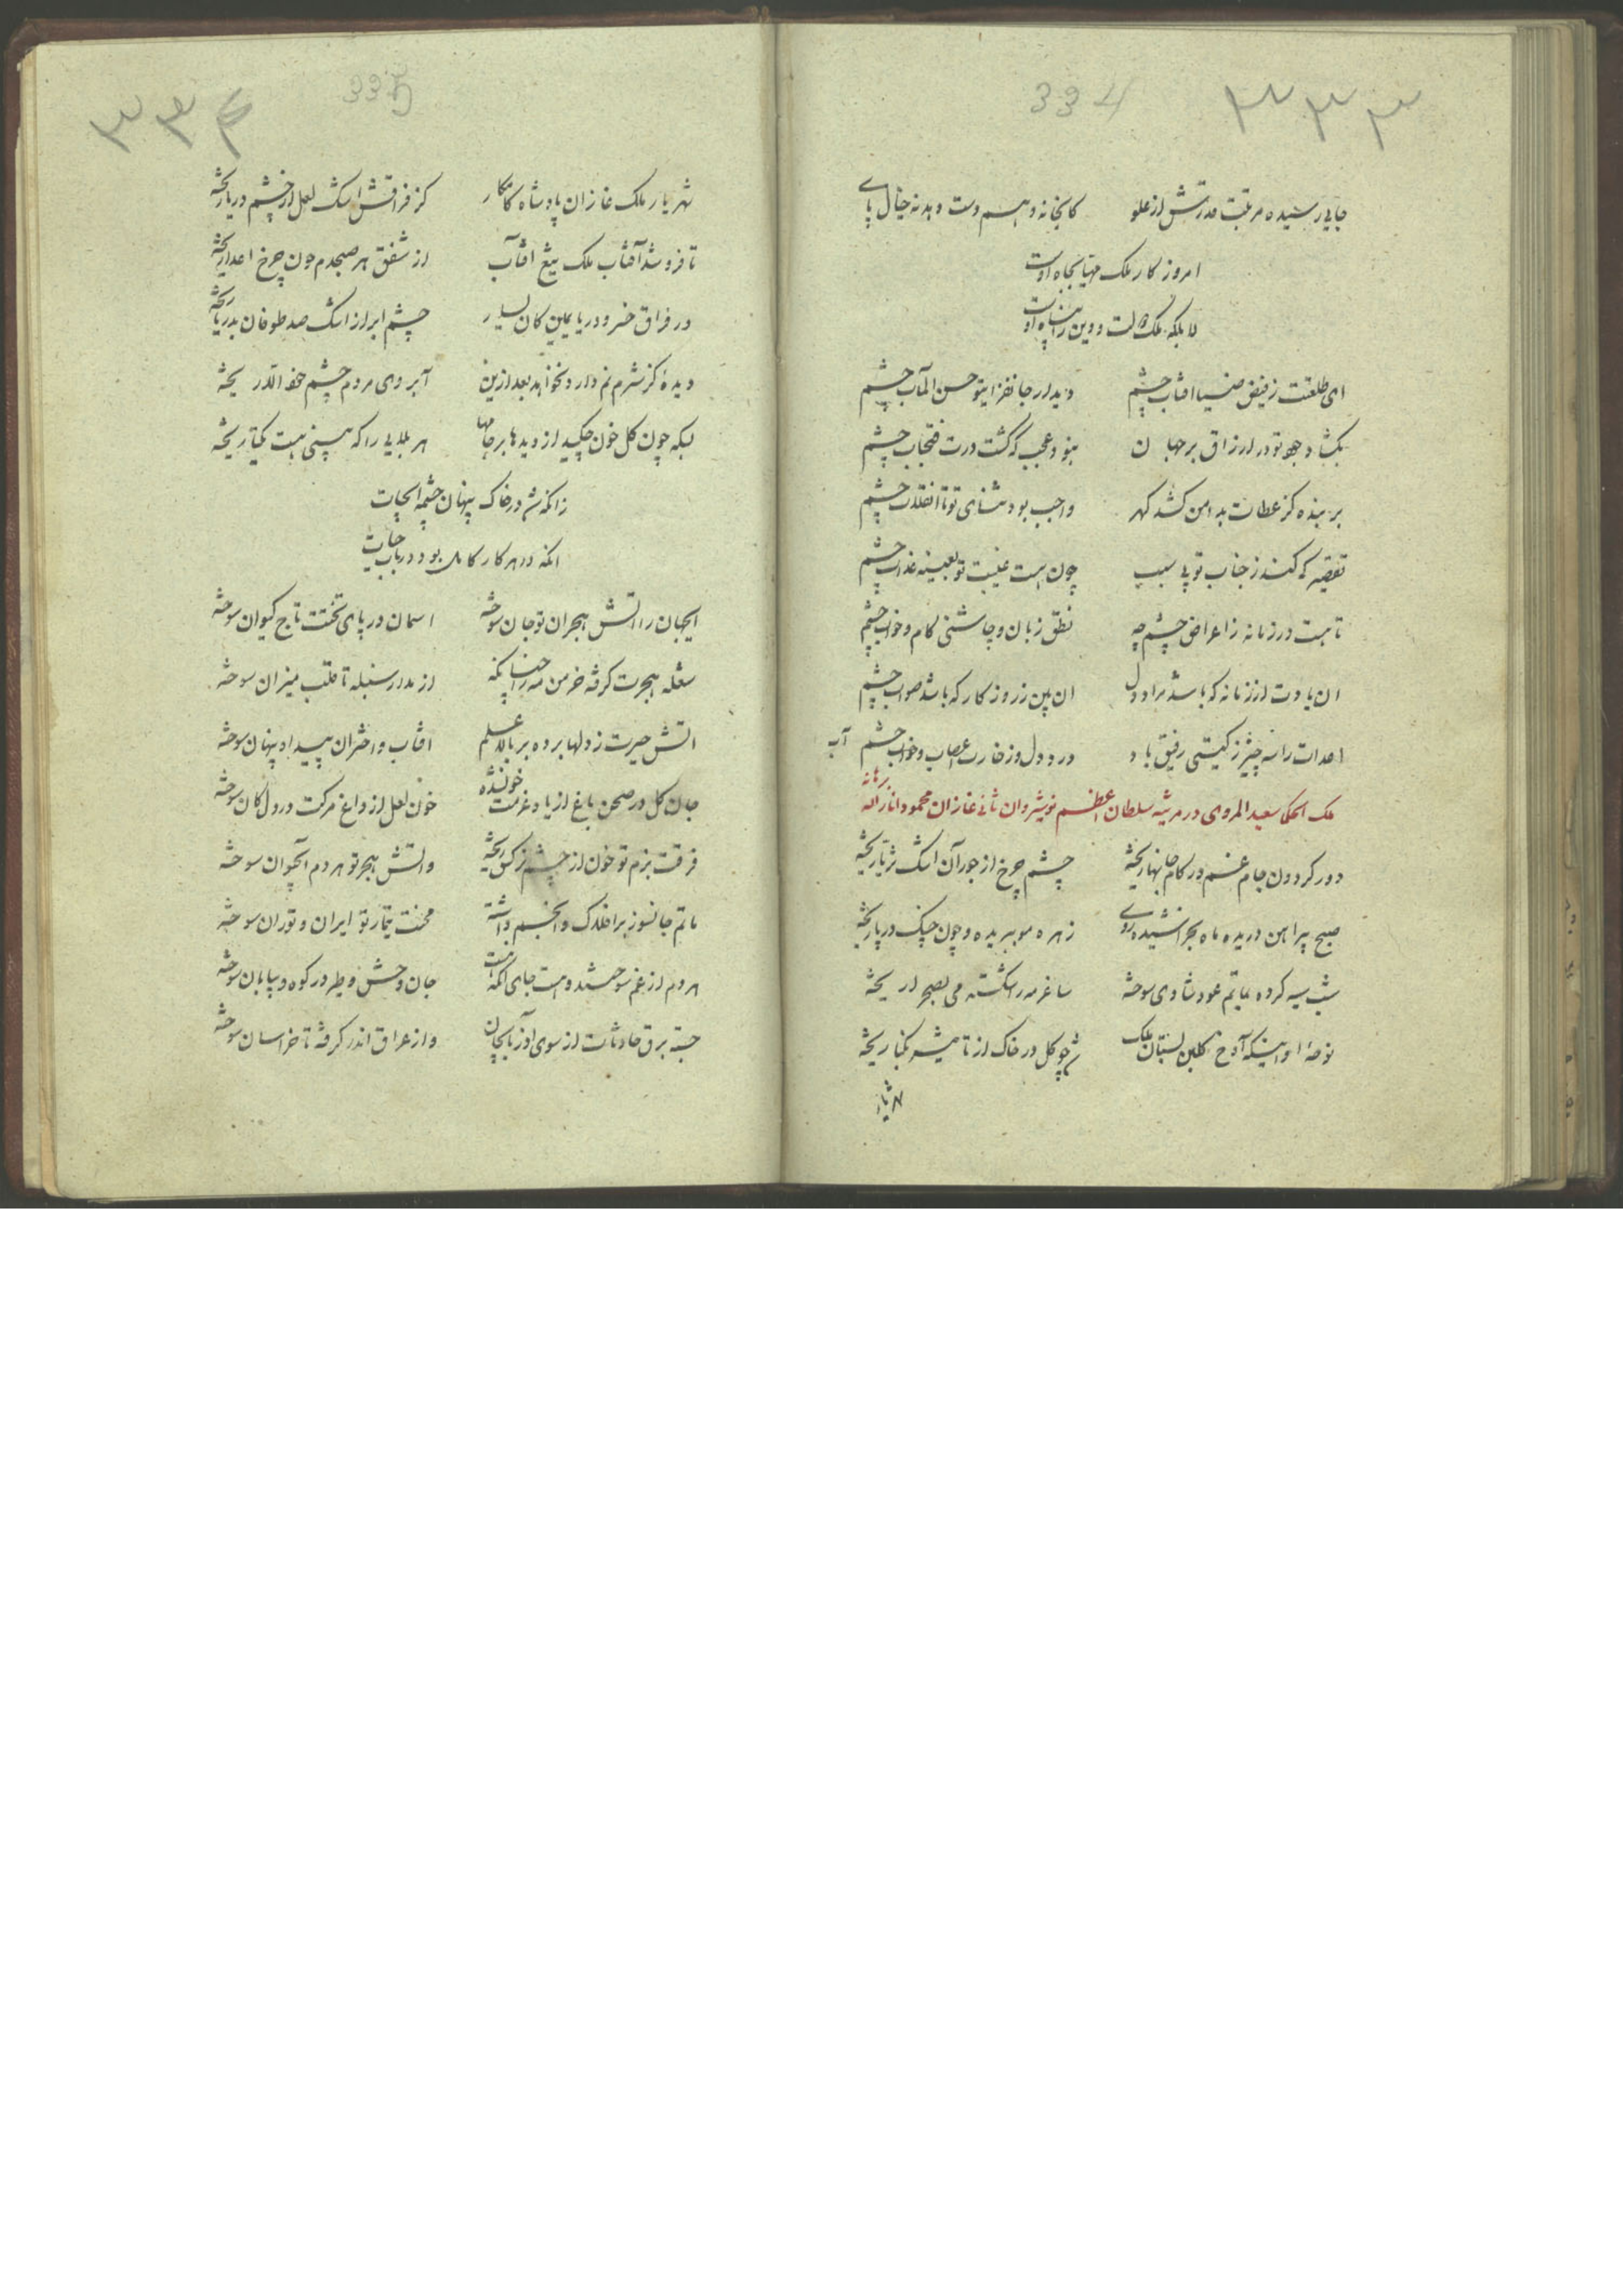 ۳۳۳ 334
جایی رسیده مرتبت قدرتش از علو کانجا نه وهم دست دهد نه خیال پای
امروز کار ملک مهیا بجاه اوست
لا بلکه ملک و ملت و دین را پناه اوست
ای طلعتت ز فیض ضیا افتاب چشم دیدار جانفزای تو حسن المآب چشم
بگشاد جود تو در ارزاق بر جهان نبود عجب که گشت درت فتحباب چشم
بر بنده کز عطات بدامن کشد گهر واجب بود ثنای تو تا انقلاب چشم
تقصیر که کند ز جناب تو بی سبب چون هست غیبت تو بعینه عذاب چشم
تا هست در زمانه ز اعراض جسم چه نطق زبان و چاشنی کام و خواب چشم
ان بادت از زمانه که باشد مراد دل ان بین ز روزکار که باشد صواب چشم
اعدات را سه چیز ز گیتی رفیق باد درد دل و ز خار عصاب و خواب چشم آب
ملک الحکما سعید الهروی در مرثیه سلطان اعظم نوشیروان ثانی غازان محمود انار الله برهانه
دور کردون جام غم در کام جانها ریخته چشم چرخ از جور آن اشک ثریا ریخته
صبح پیراهن دریده ماه بخراشیده روی زهره مو ببریده و چون چنگ در پا ریخته
شب سیه کرده بماتم عود شادی سوخته ساغر مه را شکسته می بصحرا ریخته
نوحهٔ او اینکه آوخ گلبن بستان ملک شد چو کل در خاک از تاثیر نکبا ریخته
شهریار
335 ۳۳۴
شهریار ملک غازان پادشاه کامکار کز فراقش اشک لعل از چشم دریا ریخته
تا فرو شد آفتاب ملک بیغ افتاب از شفق هر صبحدم خون چرخ اعدا ریخته
در فراق خسرو دریا یمین کان یسار چشم ابر از اشک صد طوفان بدریا ریخته
دیدهٔ کز شرم نم دارد نخواهد بعد ازین آبروی مردم چشم خود الا ریخته
بسکه چون کل خون چکید از دیدها بر جامها هر بلایی را که بینی هست یکتا ریخته
زانکه شد در خاک پنهان چشمه ابحیات
انکه در هر کار کامل بود در باب حیات
ای جهان را اتش هجران تو جان سوخته اسمان در پای تختت تاج کیوان سوخته
شعله هجرت گرفته خرمن مه را چنانکه از مدار سنبله تا قلب میزان سوخته
اتش حیرت ز دلها برده بر بالا علم افتاب و اختران پیدا و پنهان سوخته
جان کل در صحن باغ از یاد عزمت خون شده خون لعل از داغ مرگت در دل کان سوخته
فرقت بزم تو خون از چشم نرگس ریخته واتش هجر تو هر دم آبحیوان سوخته
ماتم جانسوز بر افلاک و انجم داشته محنت تیمار تو ایران و توران سوخته
مردم از غم سوختند و هست جای انکه هست جان وحش و طیر در کوه و بیابان سوخته
جسته برق حادثات از سوی اذربایجان و از عراق اندر گرفته تا خراسان سوخته